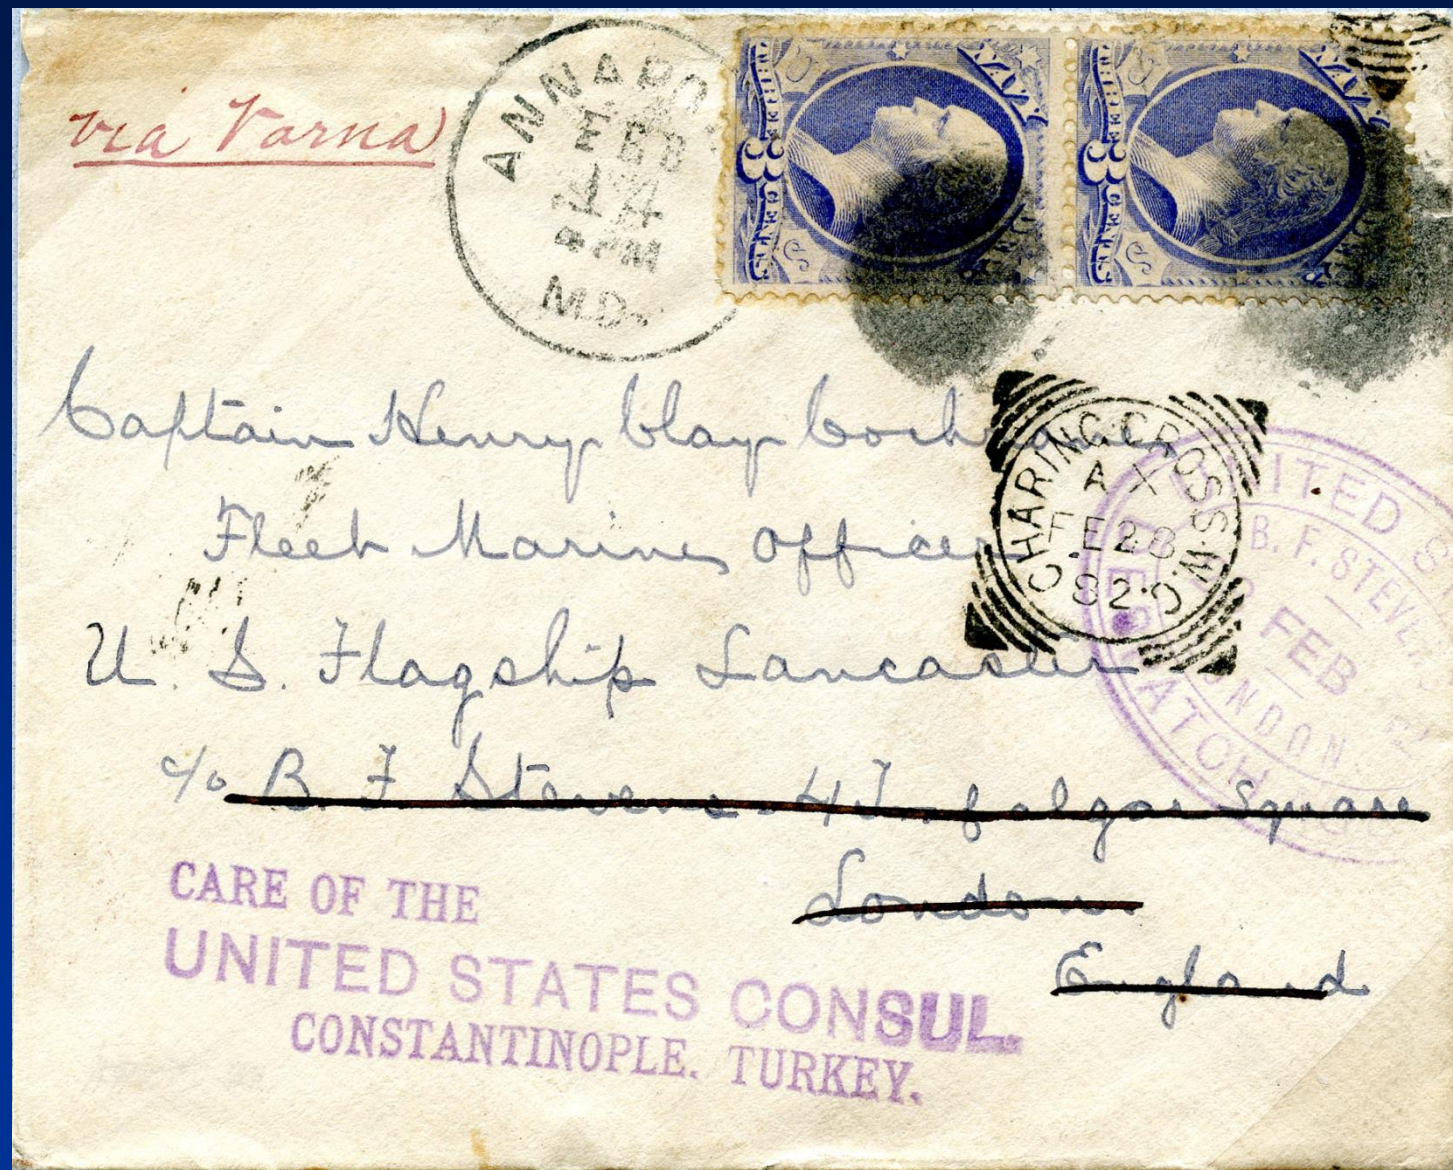 via Varna
ANNAPO
FEB
M.D.
NAVY
3
THREE CENTS
NAVY
3
THREE CENTS
Captain Henry Clay Cochrane
Fleet Marine Officer
U. S. Flagship Lancaster
c/o B. F. Stevens 4 Trafalgar Square
London
England
CHARING CROSS S.W.
A X
FE 28
82
UNITED S
B. F. STEVENS
FEB
LONDON
CARE OF THE
UNITED STATES CONSUL.
CONSTANTINOPLE. TURKEY.